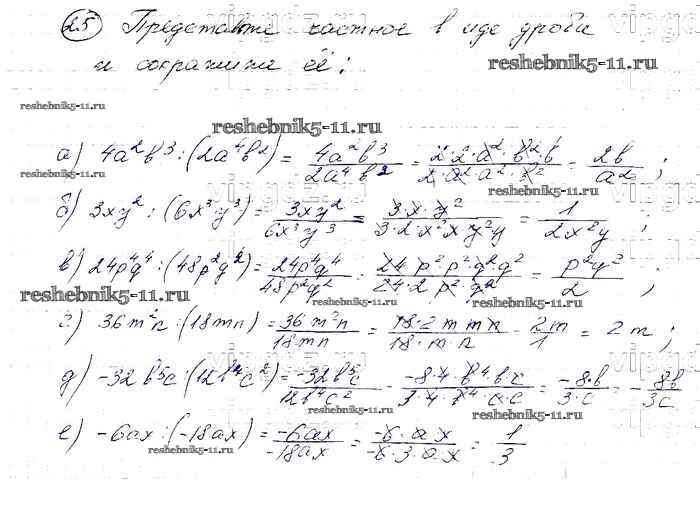 25 Представьте частное в виде дроби
и сократите её:
reshebnik5-11.ru
reshebnik5-11.ru
reshebnik5-11.ru
а) 4a²b³ : (2a⁴b²) = 4a²b³/2a⁴b² = 2·2·a²·b²·b/2·a²·a²·b² = 2b/a² ;
reshebnik5-11.ru
б) 3xy² : (6x³y³) = 3xy²/6x³y³ = 3·x·y²/3·2·x²·x·y²·y = 1/2x²y ;
в) 24p⁴q⁴ : (48p²q²) = 24p⁴q⁴/48p²q² = 24·p²·p²·q²·q²/24·2·p²·q² = p²q²/2 ;
reshebnik5-11.ru
reshebnik5-11.ru
reshebnik5-11.ru
г) 36m²n : (18mn) = 36m²n/18mn = 18·2·m·m·n/18·m·n = 2m/1 = 2m ;
д) -32b⁵c : (12b⁴c²) = -32b⁵c/12b⁴c² = -8·4·b⁴·b·c/3·4·b⁴·c·c = -8·b/3·c = -8b/3c
reshebnik5-11.ru
reshebnik5-11.ru
е) -6ax : (-18ax) = -6ax/-18ax = -6·a·x/-6·3·a·x = 1/3
reshebnik5-11.ru
reshebnik5-11.ru